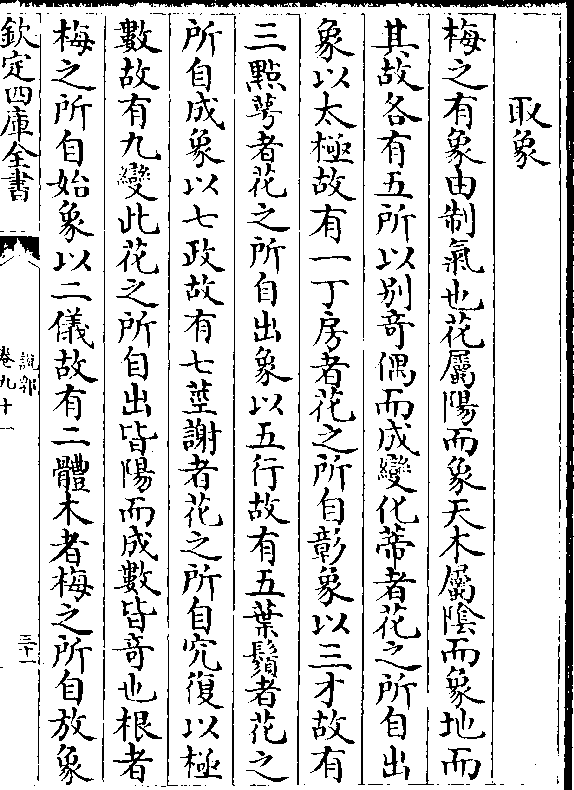 取象
梅之有象由制氣也花屬陽而象天木屬陰而象地而
其故各有五所以别竒偶而成變化蔕者花之所自出
象以太極故有一丁房者花之所自彰象以三才故有
三㸃萼者花之所自出象以五行故有五葉鬚者花之
所自成象以七政故有七莖謝者花之所自究復以極
數故有九變此花之所自出皆陽而成數皆竒也根者
梅之所自始象以二儀故有二體木者梅之所自放象
欽定四庫全書
說郛
卷九十一
三十一